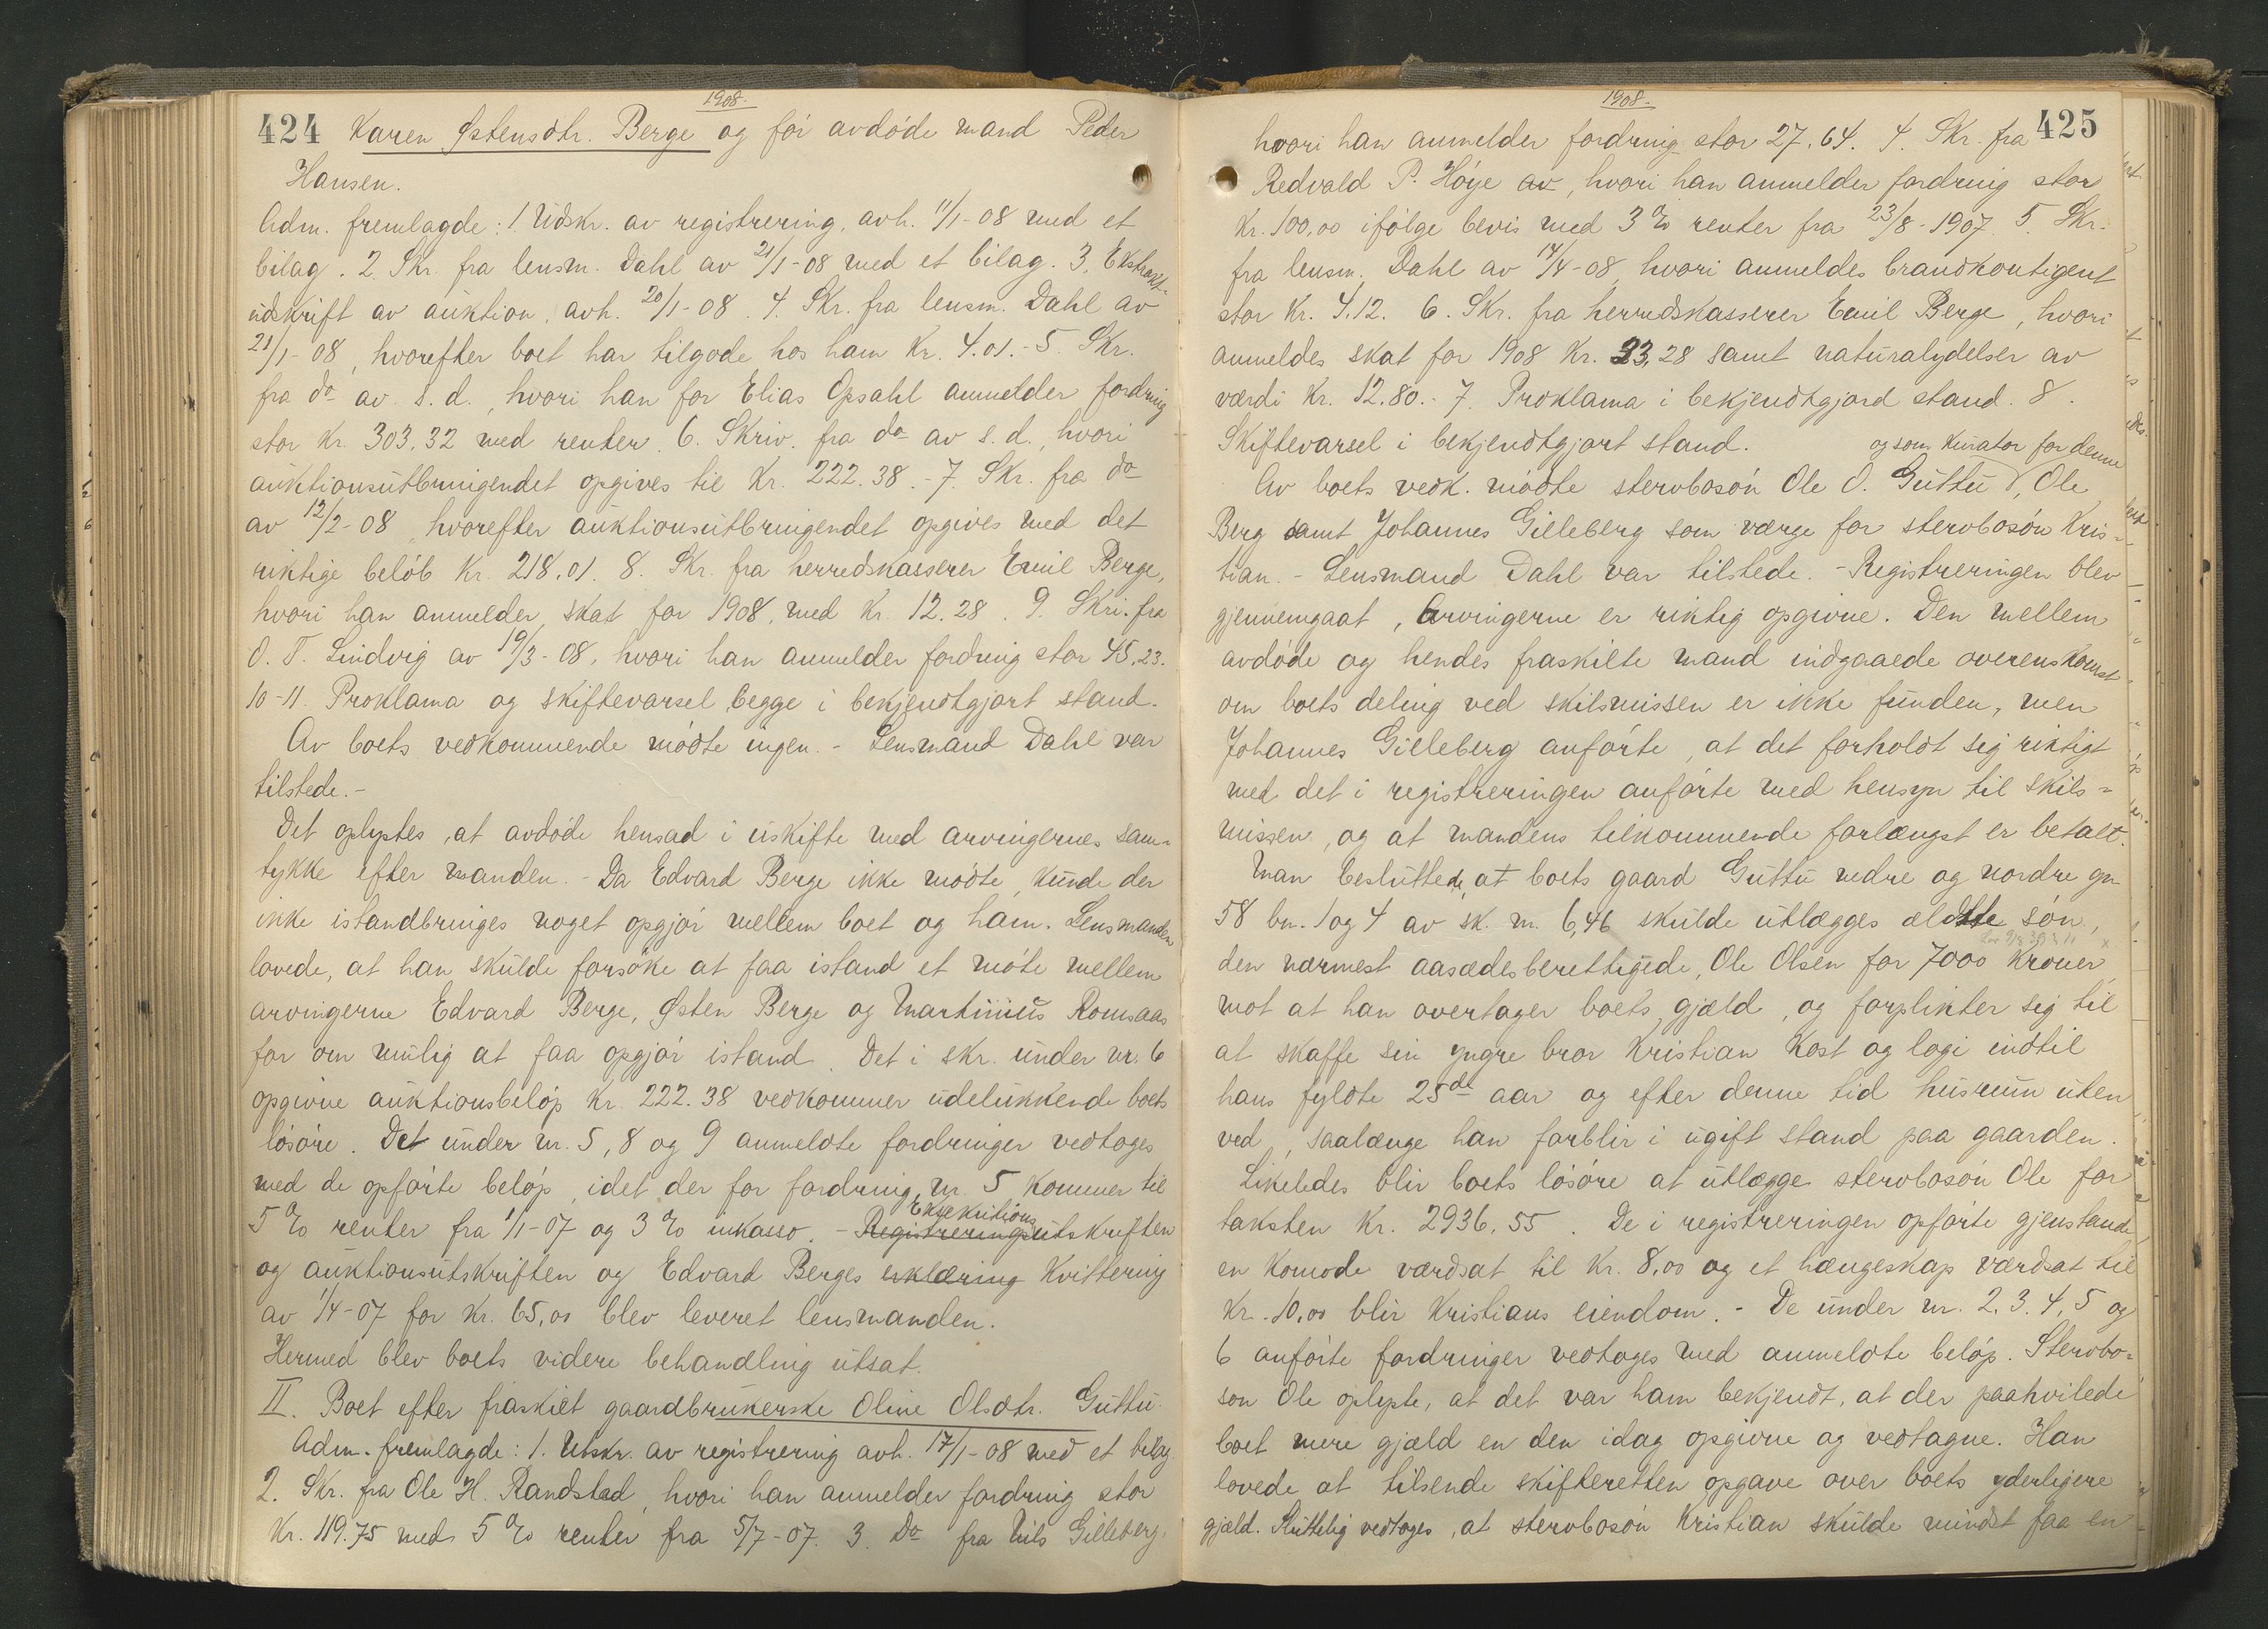 1908.
424 Karen Østensdtr. Berge og før avdøde mand Peder
Hansen.
Adm. fremlagde: 1. Udskr. av registrering, avh. 11/1-08 med et
bilag. 2. Skr. fra lensm. Dahl av 21/1-08 med et bilag. 3. Ekstrakt-
udskrift av auktion, avh. 20/1-08. 4. Skr. fra lensm. Dahl av
21/1-08, hvorefter boet har tilgode hos ham Kr. 4.01.- 5. Skr.
fra do av s.d., hvori han for Elias Opsahl anmelder fordring
stor Kr. 303.32 med renter. 6. Skriv. fra do av s.d., hvori
auktionsutbringendet opgives til Kr. 222.38.- 7. Skr. fra do
av 12/2-08, hvorefter auktionsutbringendet opgives med det
riktige beløb Kr. 218.01. 8. Skr. fra herredskasserer Emil Berge,
hvori han anmelder skat for 1908, med Kr. 12.28. 9. Skri. fra
O. T. Lindvig av 19/3-08, hvori han anmelder fordring stor 45.23.
10-11. Proklama og skiftevarsel begge i bekjendtgjort stand.
Av boets vedkommende mødte ingen.- Lensmand Dahl var
tilstede.-
Det oplystes, at avdøde hensad i uskifte med arvingernes sam-
tykke efter manden.- Da Edvard Berge ikke mødte, kunde der
ikke istandbringes noget opgjør mellem boet og ham. Lensmanden
lovede, at han skulde forsøke at faa istand et møte mellem
arvingerne Edvard Berge, Østen Berge og Martinius Romsaas
for om mulig at faa opgjør istand. Det i skr. under nr. 6
opgivne auktionsbeløp Kr. 222.38 vedkommer udelukkende boets
løsøre. Det under nr. 5, 8 og 9 anmeldte fordringer vedtoges
med de opførte beløp, idet der for fordring nr. 5 kommer til
5 % renter fra 1/1-07 og 3 % inkasso.- Registrerings Eksekutions utskriften
og auktionsutskriften og Edvard Berges erklæring Kvittering
av 1/4-07 for Kr. 65,00 blev leveret lensmanden.
Hermed blev boets videre behandling utsat.
II. Boet efter fraskilt gaardbrukerske Oline Olsdtr. Guttu.
Adm. fremlagde: 1. Utskr. av registrering avh. 17/1-08 med et bilag.
2. Skr. fra Ole H. Randstad, hvori han anmelder fordring stor
Kr. 119.75 med 5 % renter fra 5/7-07. 3. Do fra Nils Gilleberg,
1908.
425
hvori han anmelder fordring stor 27.64. 4. Skr. fra
Redvald P. Høye av, hvori han anmelder fordring stor
Kr. 100,00 ifølge bevis med 3 % renter fra 23/8-1907. 5. Skr.
fra lensm. Dahl av 14/4-08, hvori anmeldes brandkontigent
stor Kr. 4.12. 6. Skr. fra herredskasserer Emil Berge, hvori
anmeldes skat for 1908 Kr. 33,28 samt naturalydelser av
værdi Kr. 12.80.- 7. Proklama i bekjendtgjord stand. 8.
Skiftevarsel i bekjendtgjort stand.
og som Kurator for denne
Av boets vedk. mødte stervbosøn Ole O. Guttu, Ole
Berg samt Johannes Gilleberg som værge for stervbosøn Kris-
tian.- Lensmand Dahl var tilstede.- Registreringen blev
gjennemgaat, Arvingerne er riktig opgivne. Den mellem
avdøde og hendes fraskilte mand indgaaede overenskomst
om boets deling ved skilsmissen er ikke funden, men
Johannes Gilleberg anførte, at det forholdt sig riktigt
med det i registreringen anførte med hensyn til skils-
missen, og at mandens tilkommende forlængst er betalt.
Man besluttede, at boets gaard Guttu nedre og nordre gn
58 bn. 1 og 4 av sk. m. 6,46 skulde utlægges ældste søn,
den nærmest aasædesberettigede, Ole Olsen for 7000 Kroner
mot at han overtager boets gjæld, og forplikter sig til
at skaffe sin yngre bror Kristian Kost og logi indtil
hans fyldte 25de aar og efter denne tid husrum uten
ved, saalænge han forblir i ugift stand paa gaarden.
Likeledes blir boets løsøre at utlægge stervbosøn Ole for
taksten Kr. 2936.55. De i registreringen opførte gjenstande
en Komode værdsat til Kr. 8,00 og et hængeskap værdsat til
Kr. 10,00 blir Kristians eiendom.- De under nr. 2. 3. 4, 5 og
6 anførte fordringer vedtoges med anmeldte beløp. Stervbo-
søn Ole oplyste, at det var ham bekjendt, at der paahvilede
boet mere gjæld en den idag opgivne og vedtagne. Han
lovede at tilsende skifteretten opgave over boets yderligere
gjæld. Sluttelig vedtoges, at stervbosøn Kristian skulde mindst faa en